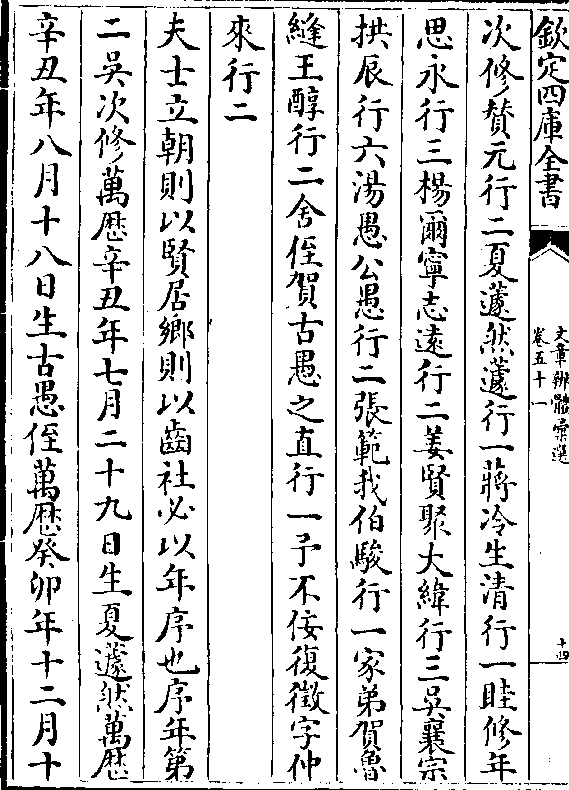 欽定四庫全書
文章辨體彙選
卷五十一
十四
次修贊元行二夏蘧然蘧行一蔣冷生清行一眭修年
思永行三楊爾寧志遠行二姜賢聚大緯行三吳襄宗
拱辰行六湯愚公愚行二張範我伯駿行一家弟賀魯
縫王醇行二舍侄賀古愚之直行一予不佞復徵字仲
來行二
夫士立朝則以賢居鄉則以齒社必以年序也序年第
二吳次修萬厯辛丑年七月二十九日生夏蘧然萬厯
辛丑年八月十八日生古愚侄萬厯癸卯年十二月十